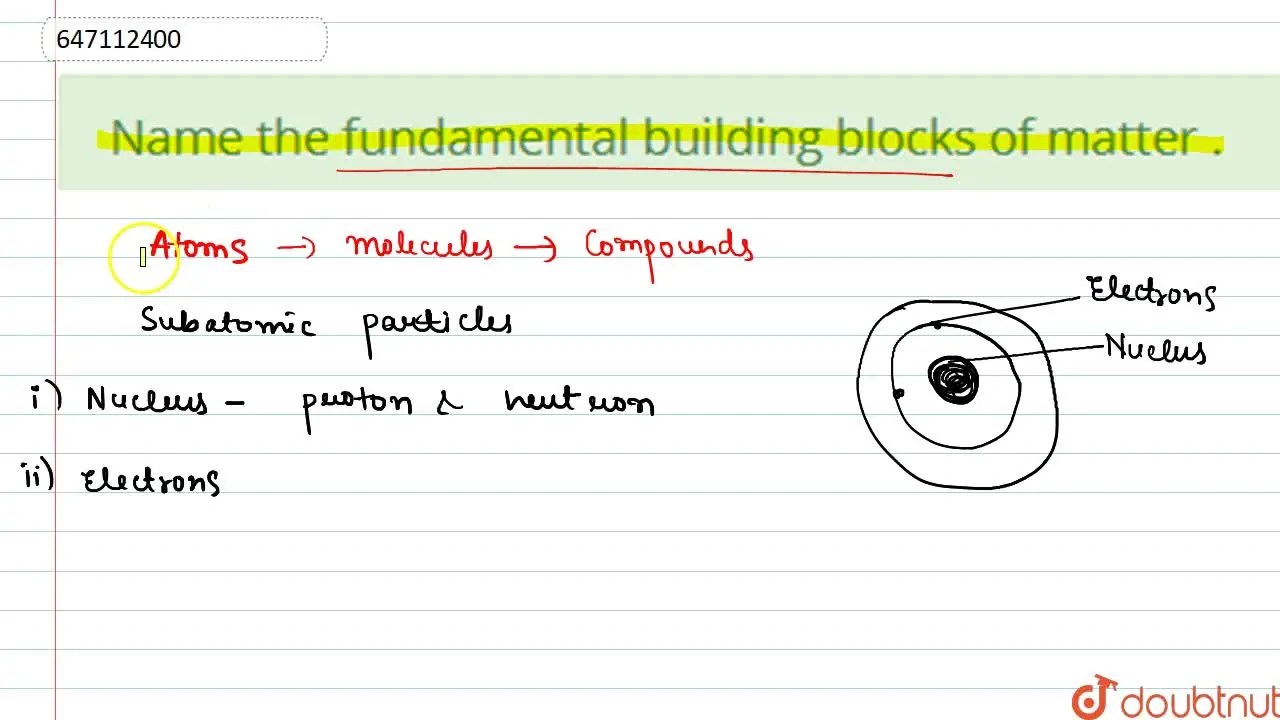 647112400
Name the fundamental building blocks of matter .
Atoms → Molecules → Compounds
Subatomic particles
i) Nucleus - proton & neutron
ii) Electrons
Electrons
Nucleus
doubtnut